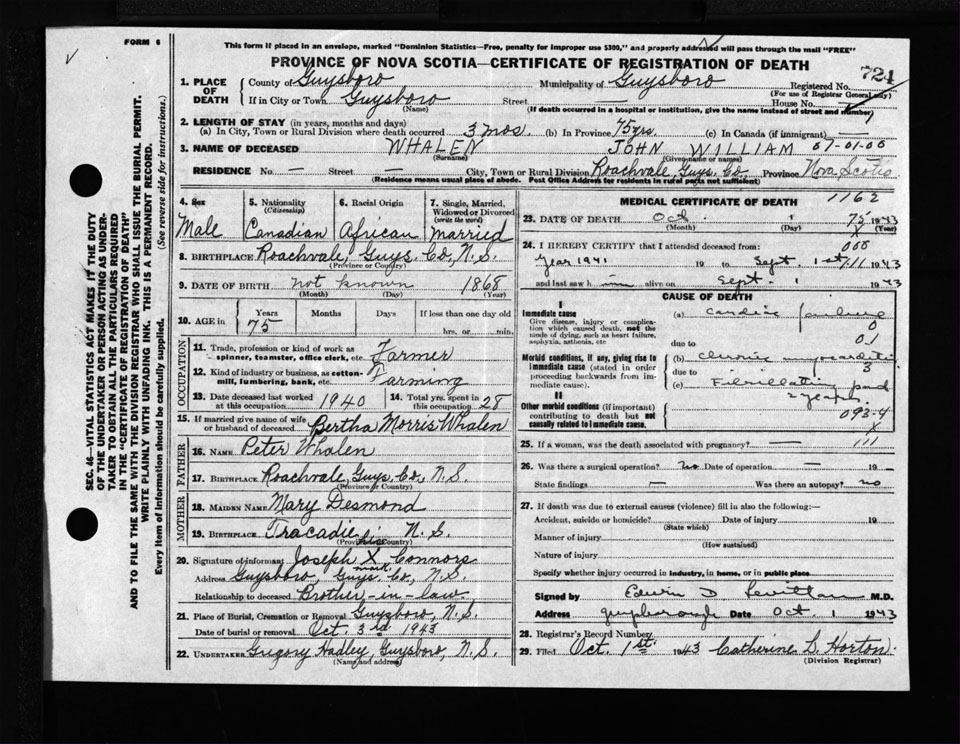 FORM 6
This form if placed in an envelope, marked "Dominion Statistics—Free, penalty for improper use $300," and properly addressed will pass through the mail "FREE"
PROVINCE OF NOVA SCOTIA—CERTIFICATE OF REGISTRATION OF DEATH
721
1. PLACE OF DEATH
County of Guysboro Municipality of Guysboro Registered No.
(For use of Registrar General only)
If in City or Town Guysboro Street — House No.
(Name) (If death occurred in a hospital or institution, give the name instead of street and number)
2. LENGTH OF STAY (in years, months and days)
(a) In City, Town or Rural Division where death occurred 3 mos (b) In Province 75 yrs. (c) In Canada (if immigrant) —
3. NAME OF DECEASED WHALEN JOHN WILLIAM 07-01-00
(Surname) (Given name or names)
RESIDENCE No. — Street — City, Town or Rural Division Roachvale, Guys. Co, Province Nova Scotia
(Residence means usual place of abode. Post Office Address for residents in rural parts not sufficient)
4. Sex Male
5. Nationality (Citizenship) Canadian
6. Racial Origin African
7. Single, Married, Widowed or Divorced (write the word) Married
8. BIRTHPLACE Roachvale, Guys. Co, N.S.
(Province or Country)
9. DATE OF BIRTH not known 1868
(Month) (Day) (Year)
10. AGE in Years Months Days If less than one day old
75 hrs. or min.
OCCUPATION
11. Trade, profession or kind of work as spinner, teamster, office clerk, etc. Farmer
12. Kind of industry or business, as cotton-mill, lumbering, bank, etc. Farming
13. Date deceased last worked at this occupation 1940
14. Total yrs. spent in this occupation 28
15. If married give name of wife or husband of deceased Bertha Morris Whalen
FATHER
16. NAME Peter Whalen
17. BIRTHPLACE Roachvale, Guys. Co, N.S.
(Province or Country)
MOTHER
18. MAIDEN NAME Mary Desmond
19. BIRTHPLACE Tracadie, N.S.
(Province or Country)
20. Signature of informant Joseph X Connors
mark
Address Guysboro, Guys Co, N.S.
Relationship to deceased Brother-in-law
21. Place of Burial, Cremation or Removal Guysboro, N.S.
Date of burial or removal Oct. 3rd 1943
22. UNDERTAKER Grigory Hadley, Guysboro, N.S.
(Name and address)
1162
MEDICAL CERTIFICATE OF DEATH
23. DATE OF DEATH Oct. 1 75 1943
(Month) (Day) X (Year)
24. I HEREBY CERTIFY that I attended deceased from: 000
Year 1941 19 to Sept. 1st 111 1943
and last saw him alive on Sept. 1 1943
CAUSE OF DEATH
I
Immediate cause
Give disease, injury or complication which caused death, not the mode of dying, such as heart failure, asphyxia, asthenia, etc
(a) cardiac failure
0
due to 01
Morbid conditions, if any, giving rise to immediate cause (stated in order proceeding backwards from immediate cause).
(b) chronic myocarditis
3
due to
(c) Fibrillating past
2 years
II
Other morbid conditions (if important) contributing to death but not causally related to immediate cause.
093-4
X
25. If a woman, was the death associated with pregnancy? — 111
26. Was there a surgical operation? no Date of operation — 19
State findings — Was there an autopsy? no
27. If death was due to external causes (violence) fill in also the following:—
Accident, suicide or homicide? Date of injury 19
(State which)
Manner of injury
(How sustained)
Nature of injury
Specify whether injury occurred in industry, in home, or in public place
Signed by Edwin D M.D.
Address Guysborough Date Oct 1 1943
28. Registrar's Record Number
29. Filed Oct. 1st. 1943 Catherine L. Horton.
(Division Registrar)
SEC. 46—VITAL STATISTICS ACT MAKES IT THE DUTY
OF THE UNDERTAKER OR PERSON ACTING AS UNDER-
TAKER TO OBTAIN ALL THE PARTICULARS REQUIRED
IN THE "CERTIFICATE OF REGISTRATION OF DEATH"
AND TO FILE THE SAME WITH THE DIVISION REGISTRAR WHO SHALL ISSUE THE BURIAL PERMIT.
WRITE PLAINLY WITH UNFADING INK. THIS IS A PERMANENT RECORD.
Every item of information should be carefully supplied. (See reverse side for instructions.)